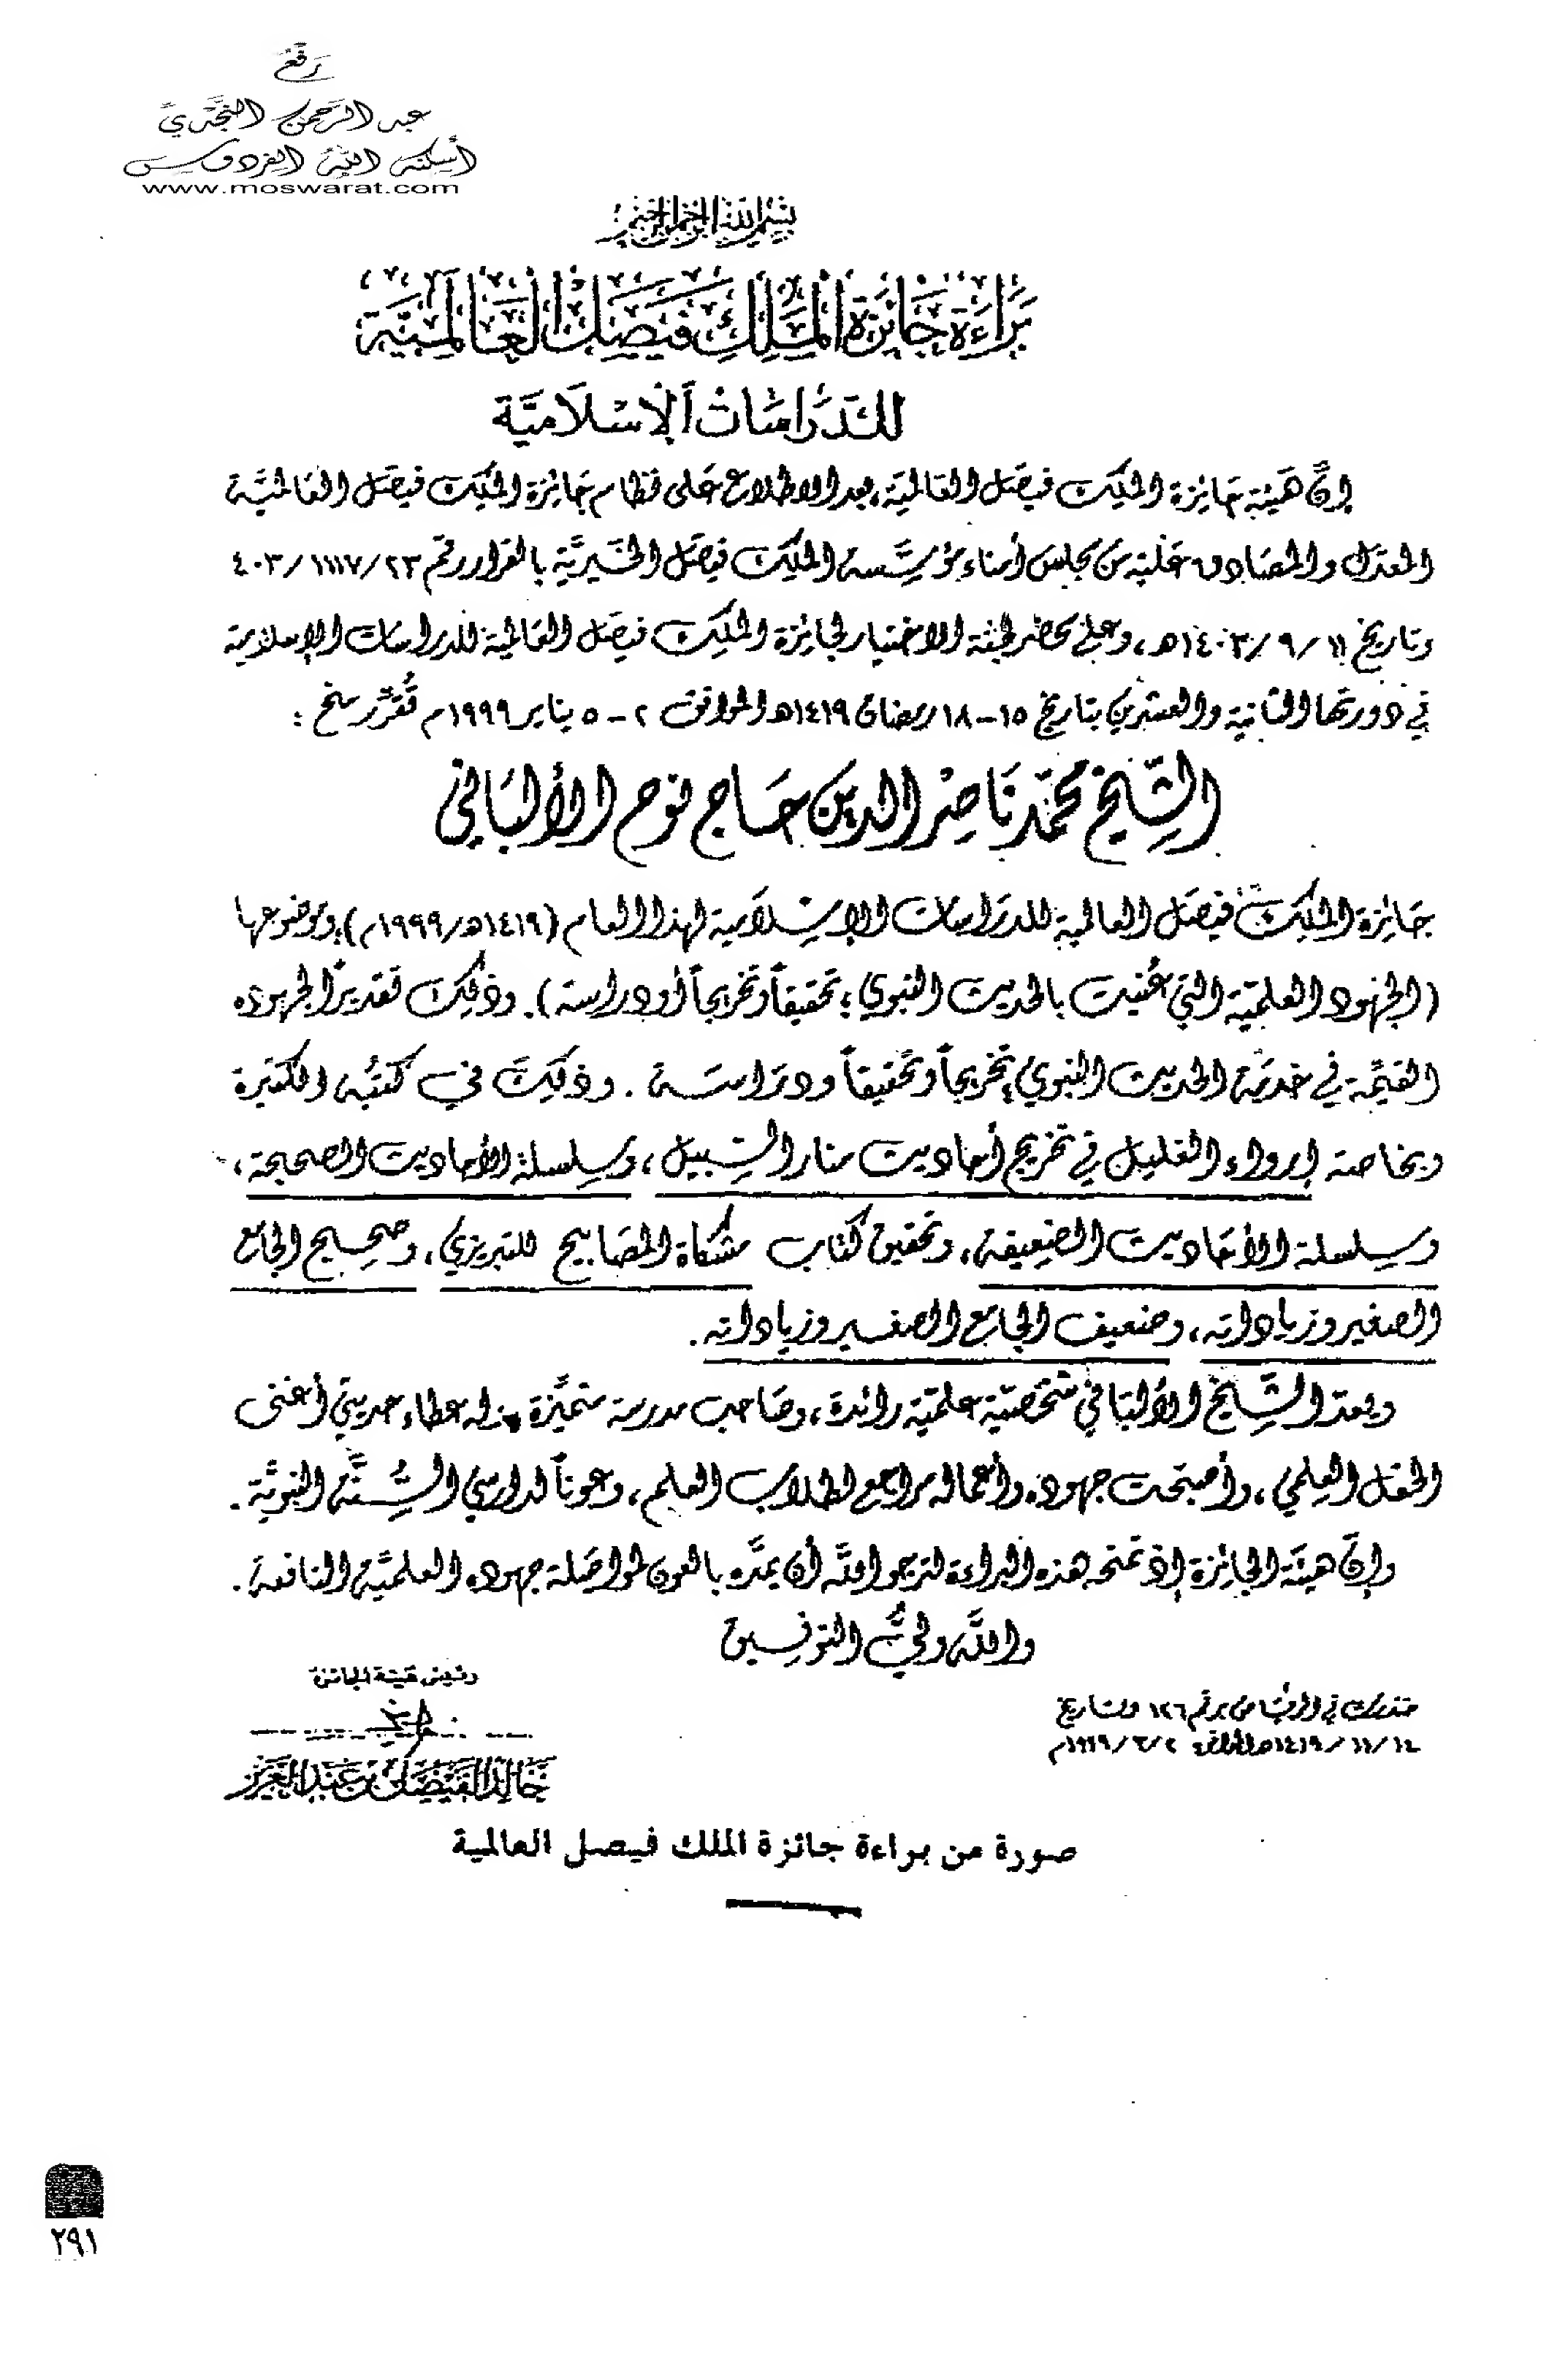 رفع
عبد الرحمن النجدي
أسكنه الله الفردوس
www.moswarat.com
بسم الله الرحمن الرحيم
براءة جائزة الملك فيصل العالمية
للدراسات الإسلامية
إنَّ هيئة جائزة الملك فيصل العالمية، بعد الاطلاع على نظام جائزة الملك فيصل العالميَّة
المعدل والمصادق عليه من مجلس أمناء مؤسَّسة الملك فيصل الخيريَّة بالقرار رقم ٢٣/ ١١١٧/ ٤٠٣
وتاريخ ١١/ ٩/ ١٤٠٣هـ، وعلى محضر لجنة الاختيار لجائزة الملك فيصل العالمية للدراسات الإسلامية
في دورتها الثانية والعشرين بتاريخ ١٥-١٨ رمضان ١٤١٩هـ الموافق ٢-٥ يناير ١٩٩٩م تُقرِّر منح :
الشيخ محمّد ناصر الدين حاج نوح الألباني
جائزة الملك فيصل العالمية للدراسات الإسلامية لهذا العام (١٤١٩هـ/١٩٩٩م)، وموضوعها
(الجهود العلميّة التي عُنيت بالحديث النبوي؛ تحقيقاً وتخريجاً أو دراسة). وذلك تقديراً لجهوده
القيِّمة في خدمة الحديث النبوي، تخريجاً وتحقيقاً ودراسة . وذلك في كتبه الكثيرة
وبخاصة إرواء الغليل في تخريج أحاديث منار السبيل، وسلسلة الأحاديث الصحيحة،
وسلسلة الأحاديث الضعيفة، وتحقيق كتاب مشكاة المصابيح للتبريزي، وصحيح الجامع
الصغير وزياداته، وضعيف الجامع الصغير وزياداته.
ويعدّ الشَّيخ الألباني شخصيّة علميّة رائدة، وصاحب مدرسة متميِّزة، له عطاء حديثي أغنى
الحقل العلمي، وأصبحت جهوده وأعماله مراجع لطلاب العلم، وعوناً لدارسي السُّنَّة النبويَّة .
وإنَّ هيئة الجائزة إذ تمنحه هذه البراءة لترجو الله أن يمدَّه بالعون لمواصلة جهوده العلميَّة النافعة .
والله وليُّ التوفيق
رئيس هيئة الجائزة
برقم ١٢٦ وتاريخ
خالد الفيصل بن عبد العزيز
صورة من براءة جائزة الملك فيصل العالمية
٢٩١